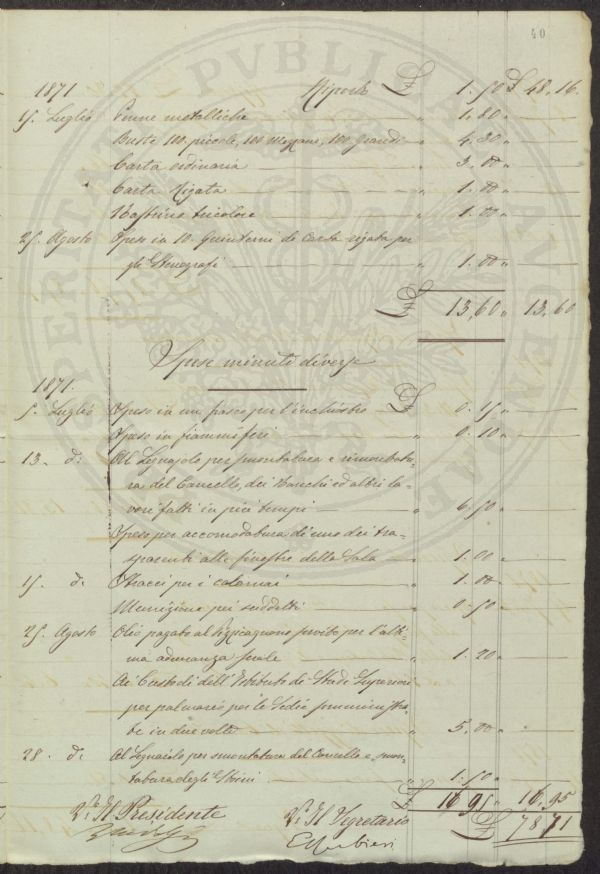 40
1871 Riporto £ 1.50 £ 48.16.
15. Luglio Penne metalliche " 1.80 "
Buste 100. piccole, 100 Mezzane, 100 Grandi " 4.30 "
Carta ordinaria " 3.00 "
Carta Rigata " 1.00 "
Nastrino tricolore " 1.00 "
25. Agosto Spese in 10. Quinterni di Carta rigata per
gli Stenografi " 1.00 "
£ 13.60 " 13.60
Spese minute diverse
1871.
5. Luglio Speso in un fiasco per l'inchiostro £ 0.15 "
Speso in fiammiferi " 0.10 "
13. d: Al Legnajolo per smontatura e rimontatu=
ra del Cancello, dei Banchi ed altri la=
vori fatti in più tempi " 6.50 "
Speso per accomodatura di uno dei tra=
sparenti alle finestre della Sala " 1.00 "
15. d: Stracci per i calamai " 1.00 "
pei suddetti " 0.50 "
25. Agosto Olio pagato al Pizzicagnolo servito per l'ulti=
ma adunanza serale " 1.20 "
Ai Custodi dell'Istituto di Studi Superiori
per per le Sedie somministra=
te in due volte " 5.00 "
28. d: Al Legnaiolo per smontatura del Cancello e smon=
tatura degli " 1.50 "
£ 16.95 " 16.95
V.° Il Presidente V.° Il Segretario £ 78.71
E. Barbieri
PVBLICAE